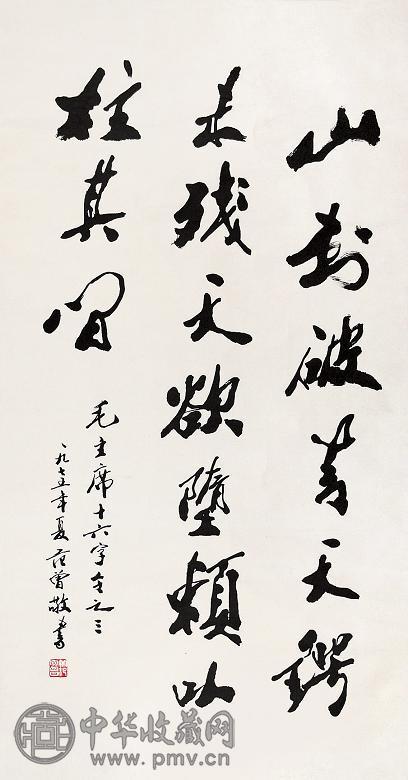 山刺破青天锷
未残天欲堕赖以
柱其间
毛主席十六字令之三
一九七五年夏范曾敬书
中华收藏网
www.pmv.cn